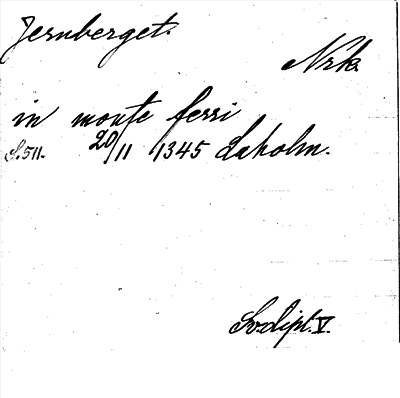 Jernberget.
Nrk.
in monte ferri
S. 511. 20/11 1345 Laholm.
Sv. dipl. V.